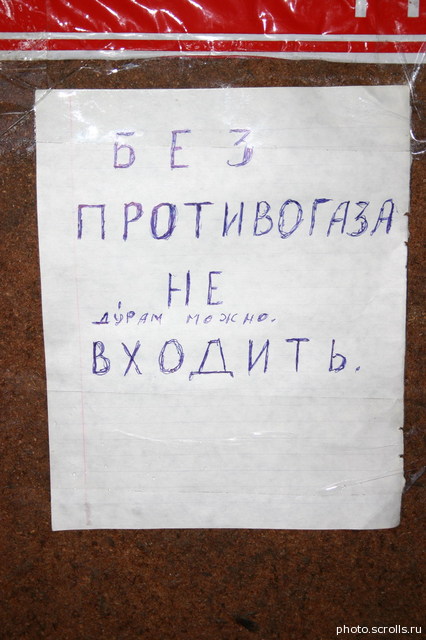 БЕЗ
ПРОТИВОГАЗА
НЕ
ДУ́РАМ МОЖНО.
ВХОДИТЬ.
photo.scrolls.ru